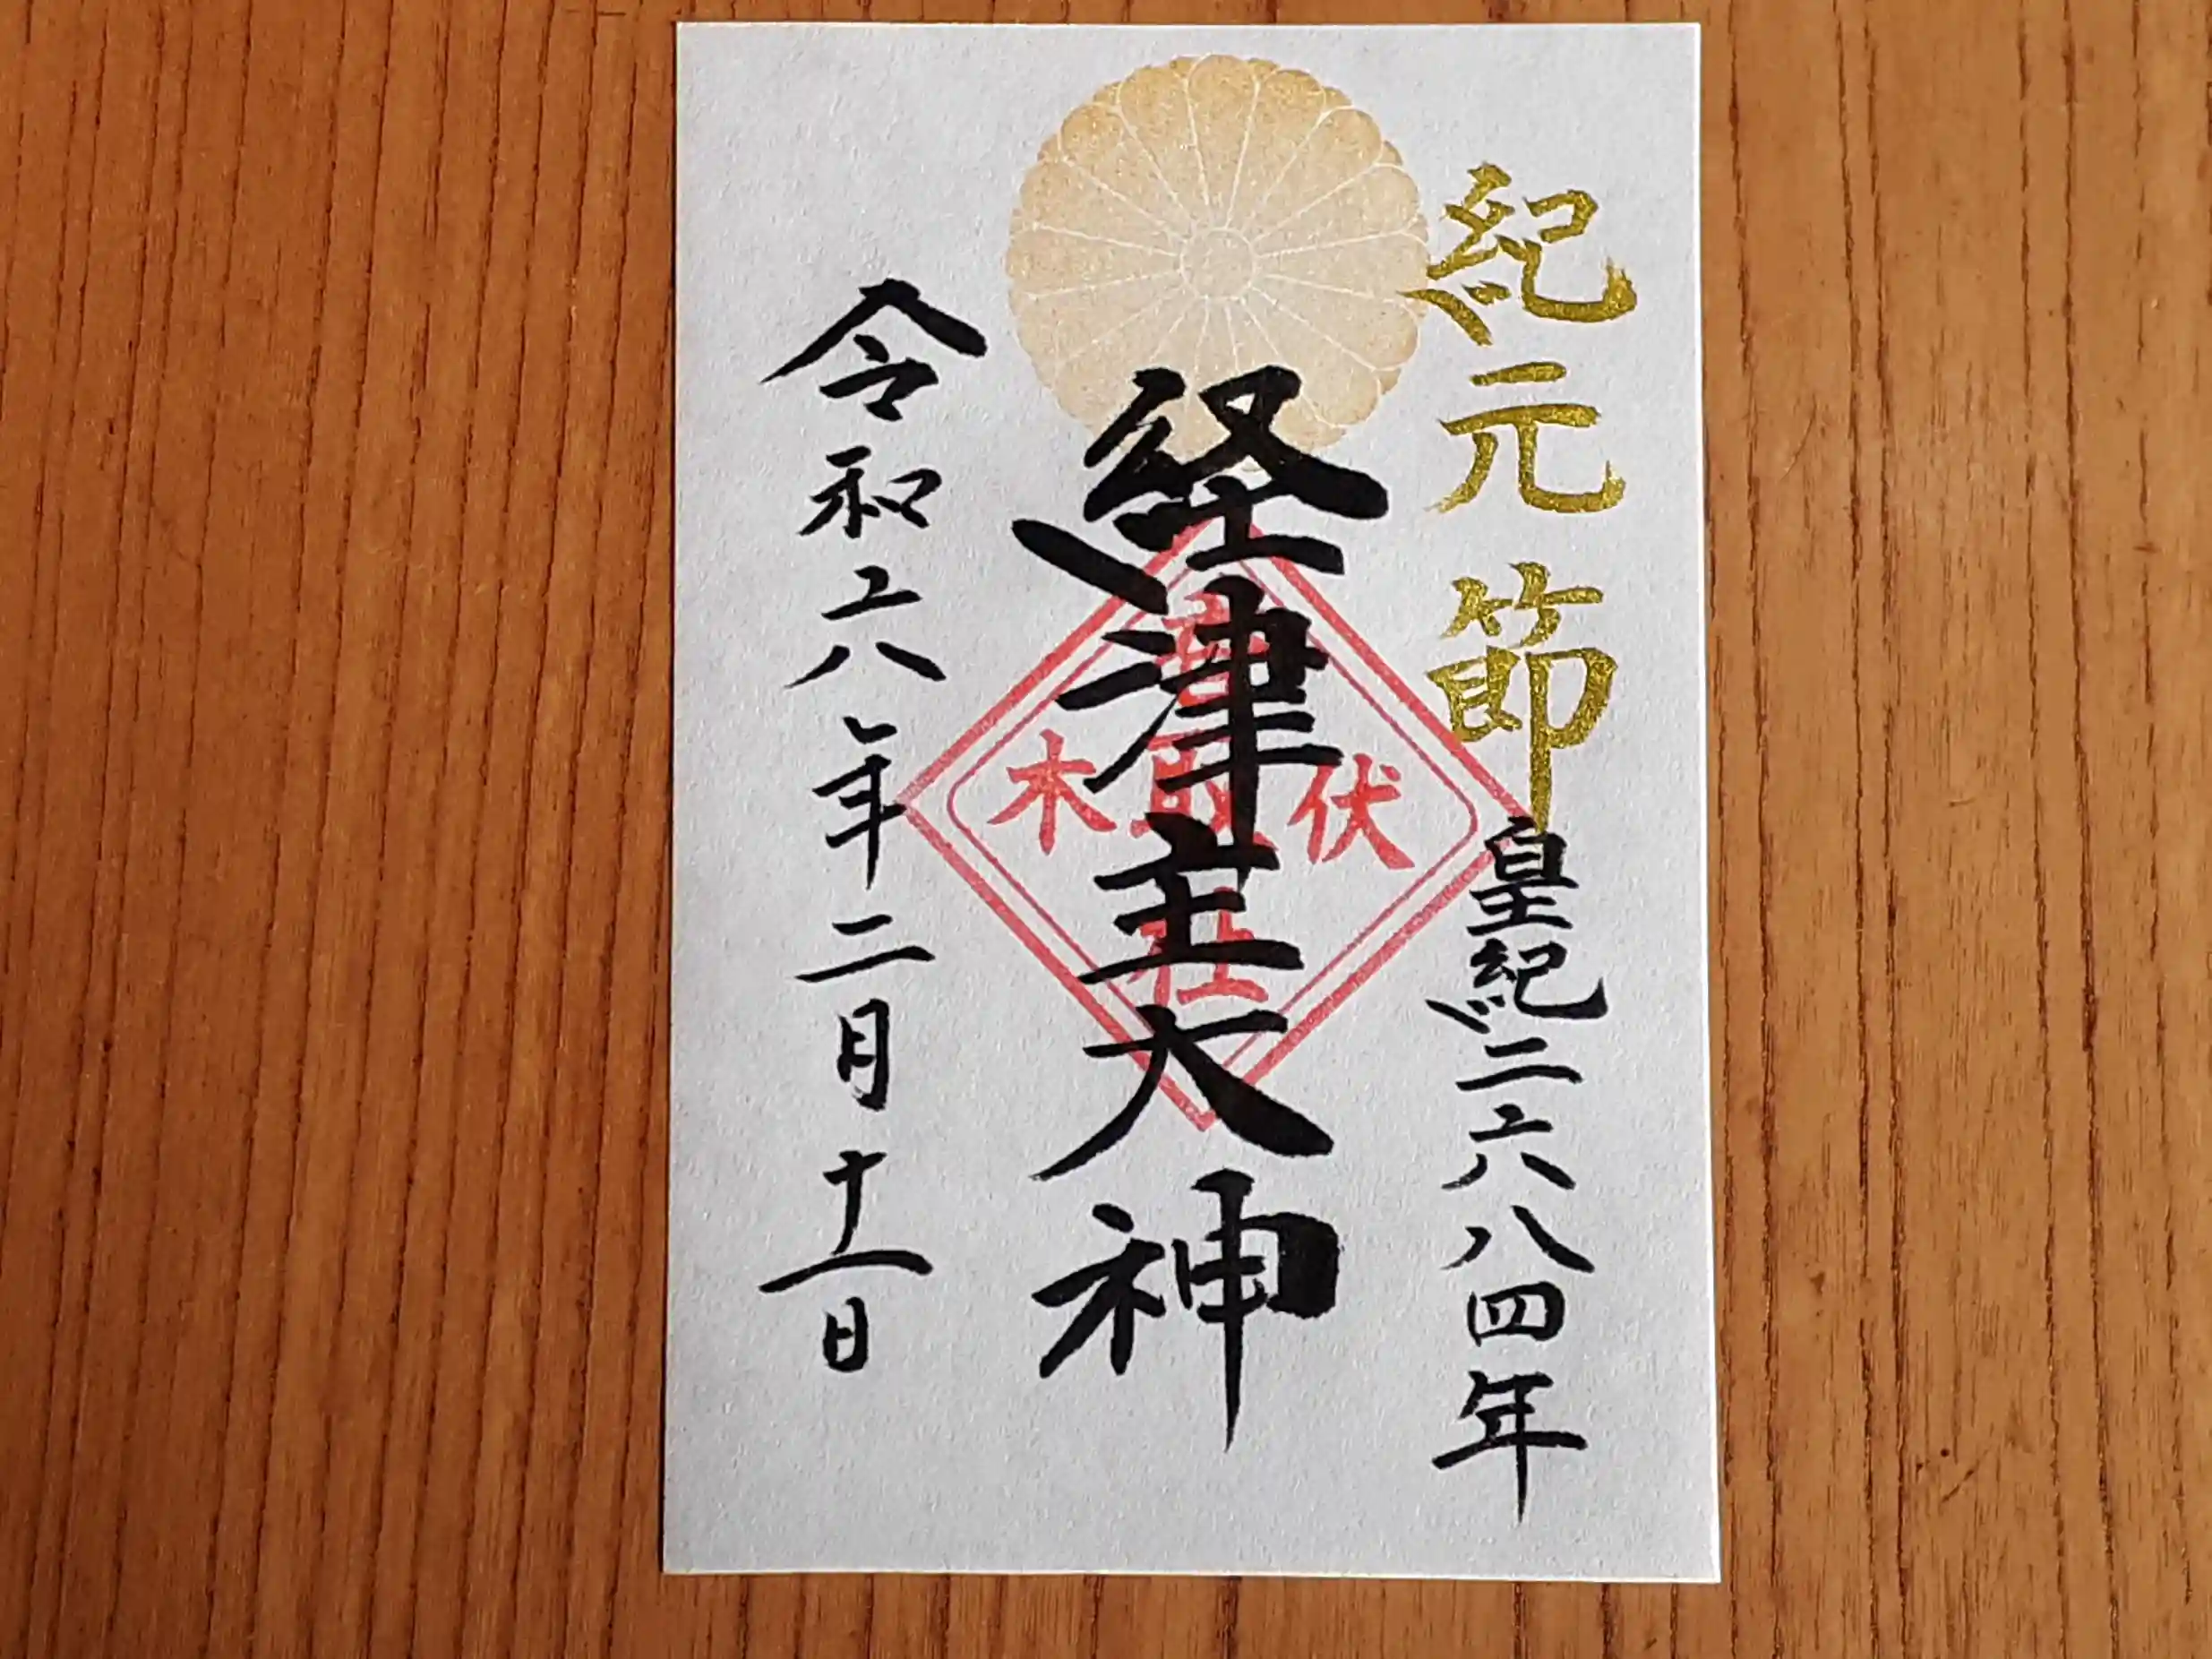 紀元節
皇紀二六八四年
経津主大神
伏
木
香取
社
令和六年二月十一日